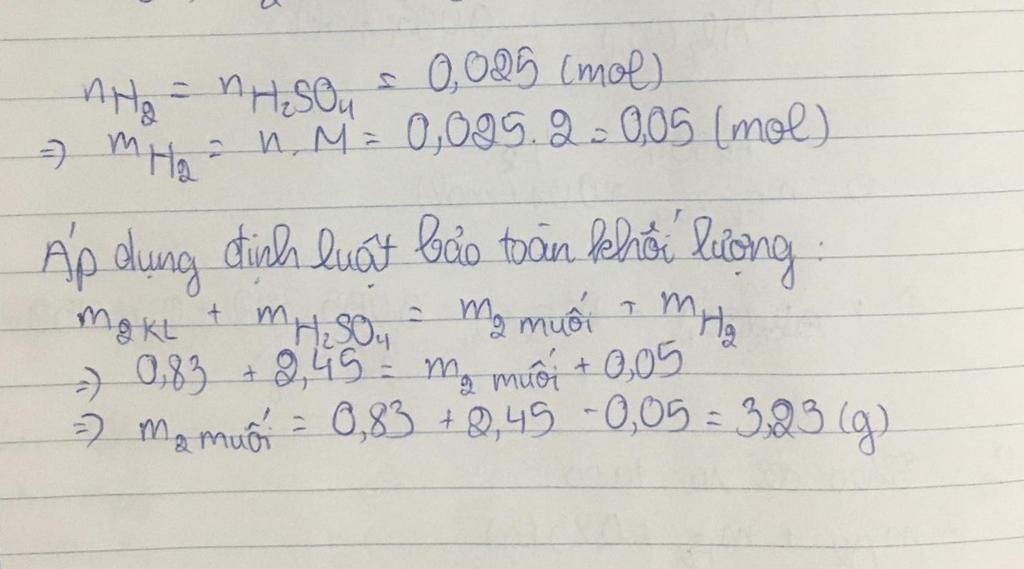 nH₂ = nH₂SO₄ = 0,025 (mol)
⇒ mH₂ = n.M = 0,025.2 = 0,05 (mol)
Áp dụng định luật bảo toàn khối lượng :
m2KL + mH₂SO₄ = m2 muối + mH₂
⇒ 0,83 + 2,45 = m2 muối + 0,05
⇒ m2 muối = 0,83 + 2,45 - 0,05 = 3,23 (g)